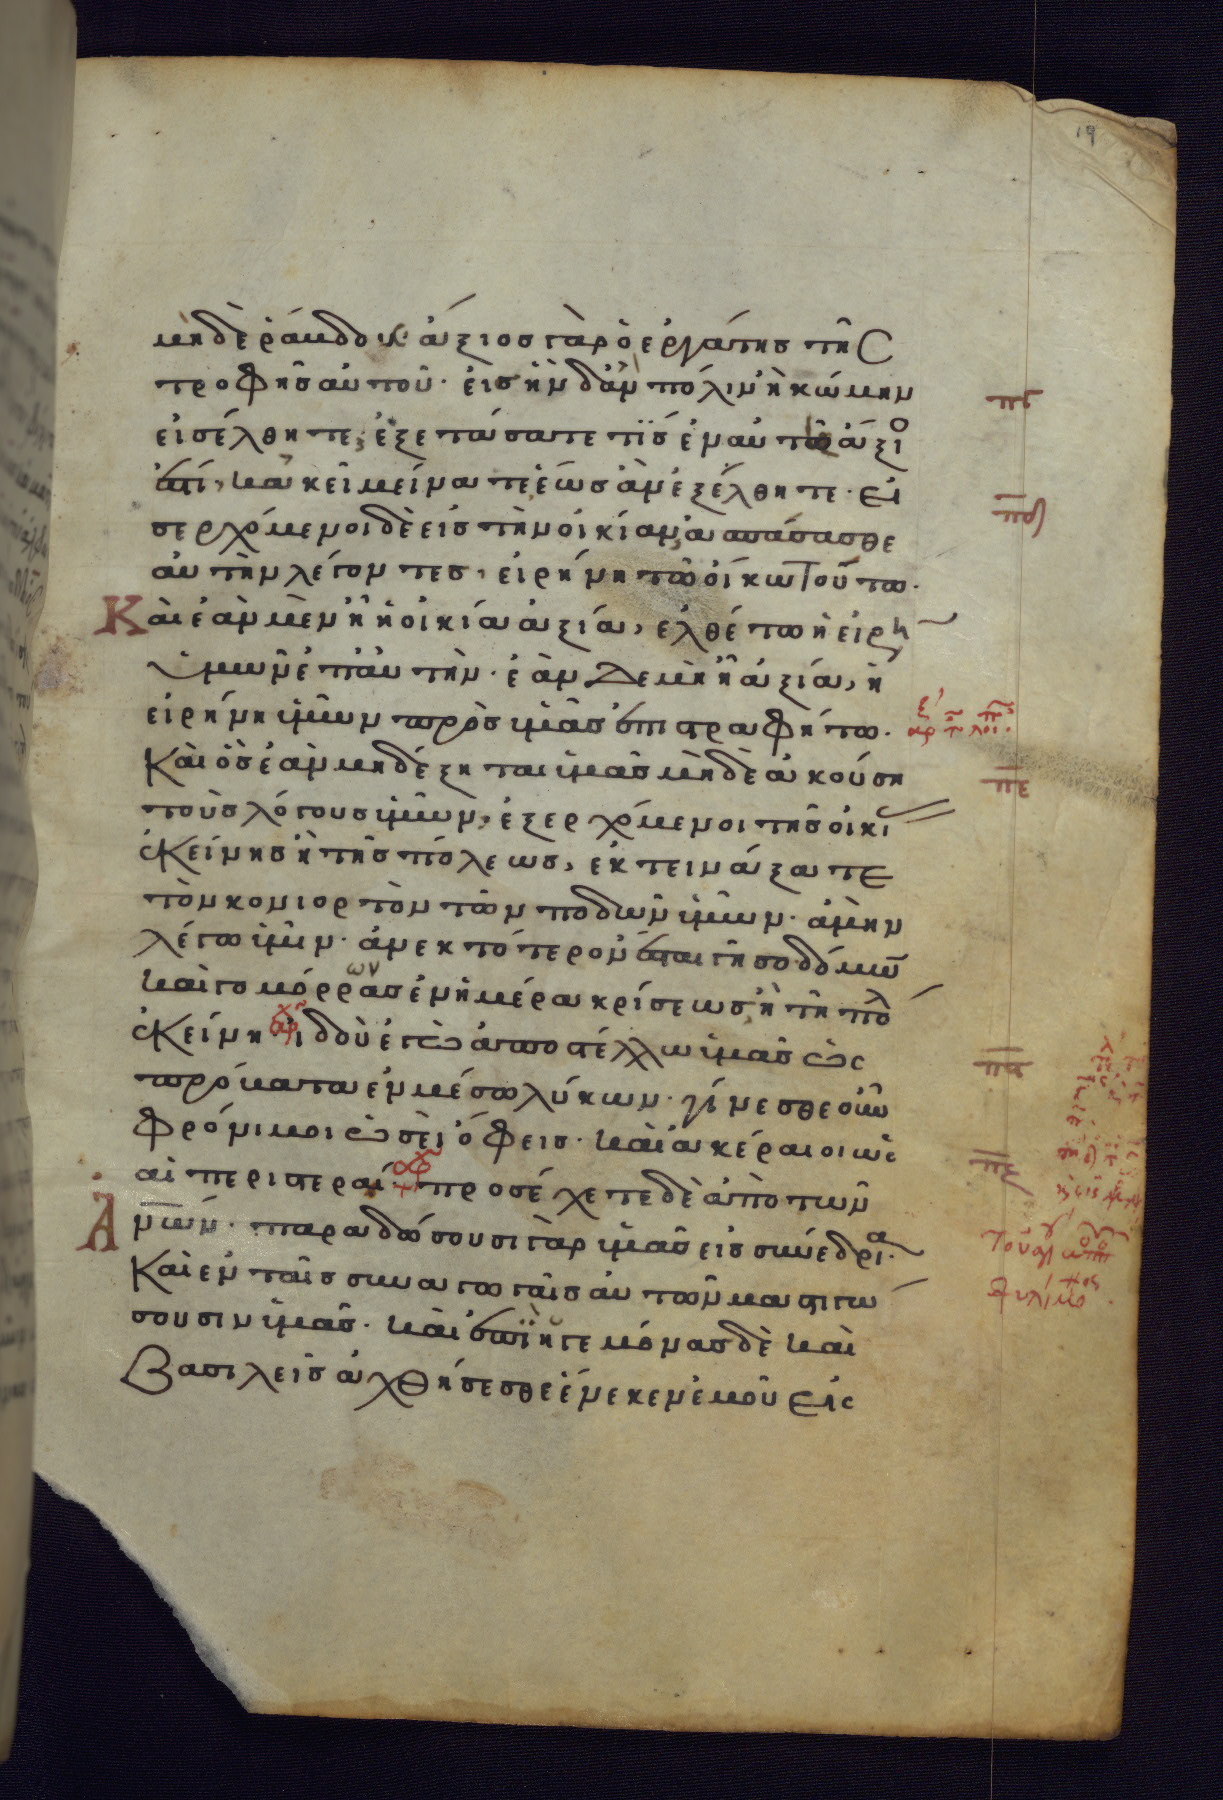 19
μηδὲ ῥάβδον· ἄξιος γὰρ ὁ ἐργάτης τῆς
τροφῆς αὐτοῦ· εἰς ἣν δ' ἂν πόλιν ἢ κώμην
εἰσέλθητε, ἐξετάσατε τίς ἐν αὐτῶ ἄξιο
ἐστί, κακεῖ μείνατε ἕως ἂν ἐξέλθητε· εἰ
σερχόμενοι δὲ εἰς τὴν οἰκίαν ἀσπάσασθε
αὐτὴν λέγοντες, εἰρήνη τῶ οἴκω τούτω·
Καὶ ἐὰν μὲν ἦ ἡ οἰκία ἀξία, ἐλθέτω ἡ εἰρή
ὑμῶν ἐπ' αὐτὴν· ἐὰν δὲ μὴ ἦ ἀξία, ἡ
εἰρήνη ὑμῶν πρὸς ὑμᾶς ἐπιστραφήτω·
Καὶ ὃς ἐὰν μὴ δέξηται ὑμᾶς μηδὲ ἀκούση
τοὺς λόγους ὑμῶν, ἐξερχόμενοι τῆς οἰκί
ἐκείνης ἢ τῆς πόλεως, ἐκτεινάξατε
τὸν κονιορτὸν τῶν ποδῶν ὑμῶν· ἀμὴν
λέγω ὑμῖν· ἀνεκτότερον ἔσται γῆ σοδόμω
καὶ γομόρρας ων ἐν ἡμέρα κρίσεως, ἢ τῆ πόλ
ἐκείνη ἰδοὺ ἐγὼ ἀποστέλλω ὑμᾶς ὡς
πρόβατα ἐν μέσω λύκων· γίνεσθε οὖν
φρόνιμοι ὡσεὶ ὄφεις· καὶ ἀκέραιοι ὡς
αἱ περιστεραί· προσέχετε δὲ ἀπὸ τῶν
ἀνῶν· παραδώσουσι γὰρ ὑμᾶς εἰς συνέδρια·
Καὶ ἐν ταῖς συναγωγαῖς αὐτῶν μαστιγώ
σουσιν ὑμᾶς· καὶ ἐπὶ ἡγεμόνας δὲ καὶ
βασιλεῖς ἀχθήσεσθε ἕνεκεν ἐμοῦ εἰς